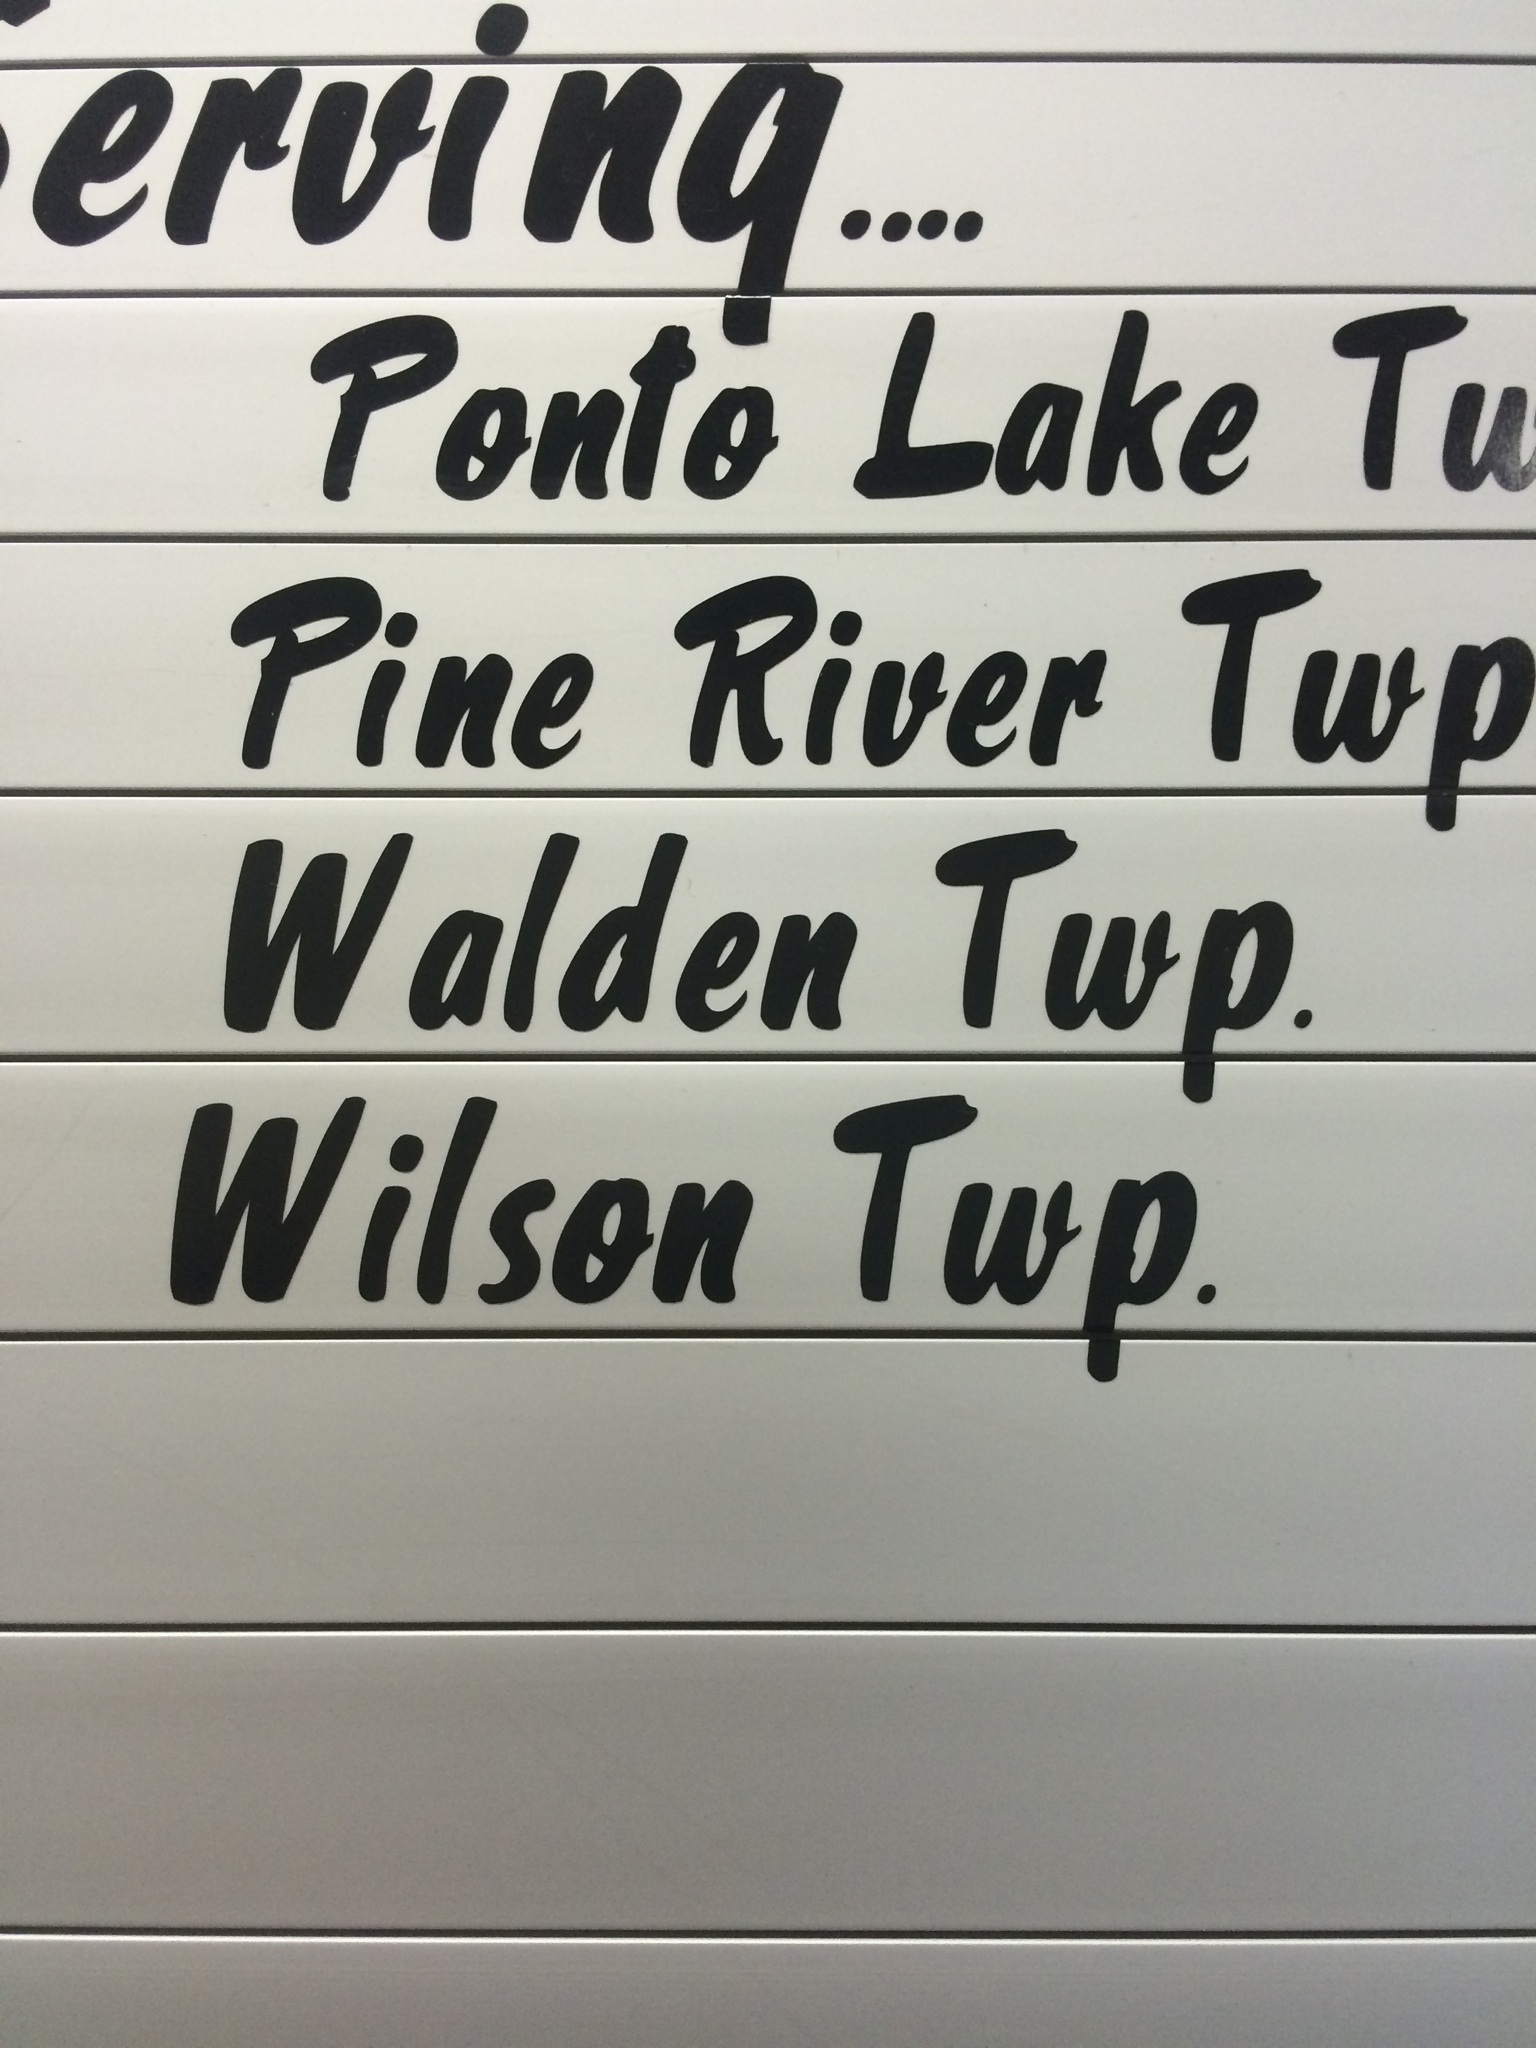 Serving....
Ponto Lake Tw
Pine River Twp
Walden Twp.
Wilson Twp.